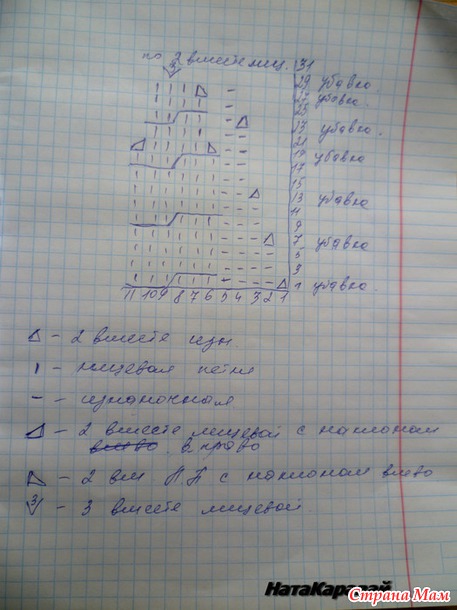 по 2 вместе лиц. 31
3
29 убавка
27 убавка.
25
23 убавка.
21
19 убавка
17
15
13 убавка
11
9
7 убавка
5
3
1 убавка.
11 10 9 8 7 6 5 4 3 2 1
△ - 2 вместе изн.
| - лицевая петля
- - изнаночная
- 2 вместе лицевой с наклоном
вправо
- 2 вм ЛП с наклоном влево
3 - 3 вместе лицевой.
НатаКаравай
Страна Мам